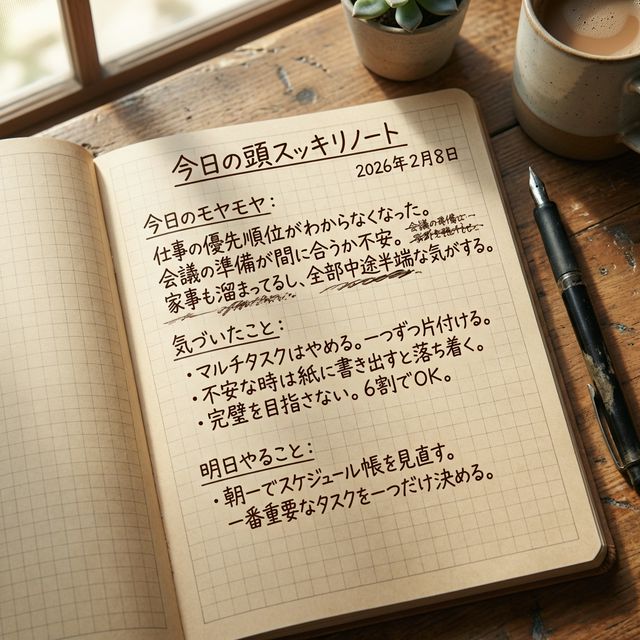 今日の頭スッキリノート
2026年2月8日
今日のモヤモヤ:
仕事の優先順位がわからなくなった。
会議の準備が間に合うか不安。
家事も溜まってるし、全部中途半端な気がする。
気づいたこと:
・マルチタスクはやめる。一つずつ片付ける。
・不安な時は紙に書き出すと落ち着く。
・完璧を目指さない。6割でOK。
明日やること:
・朝一でスケジュール帳を見直す。
一番重要なタスクを一つだけ決める。